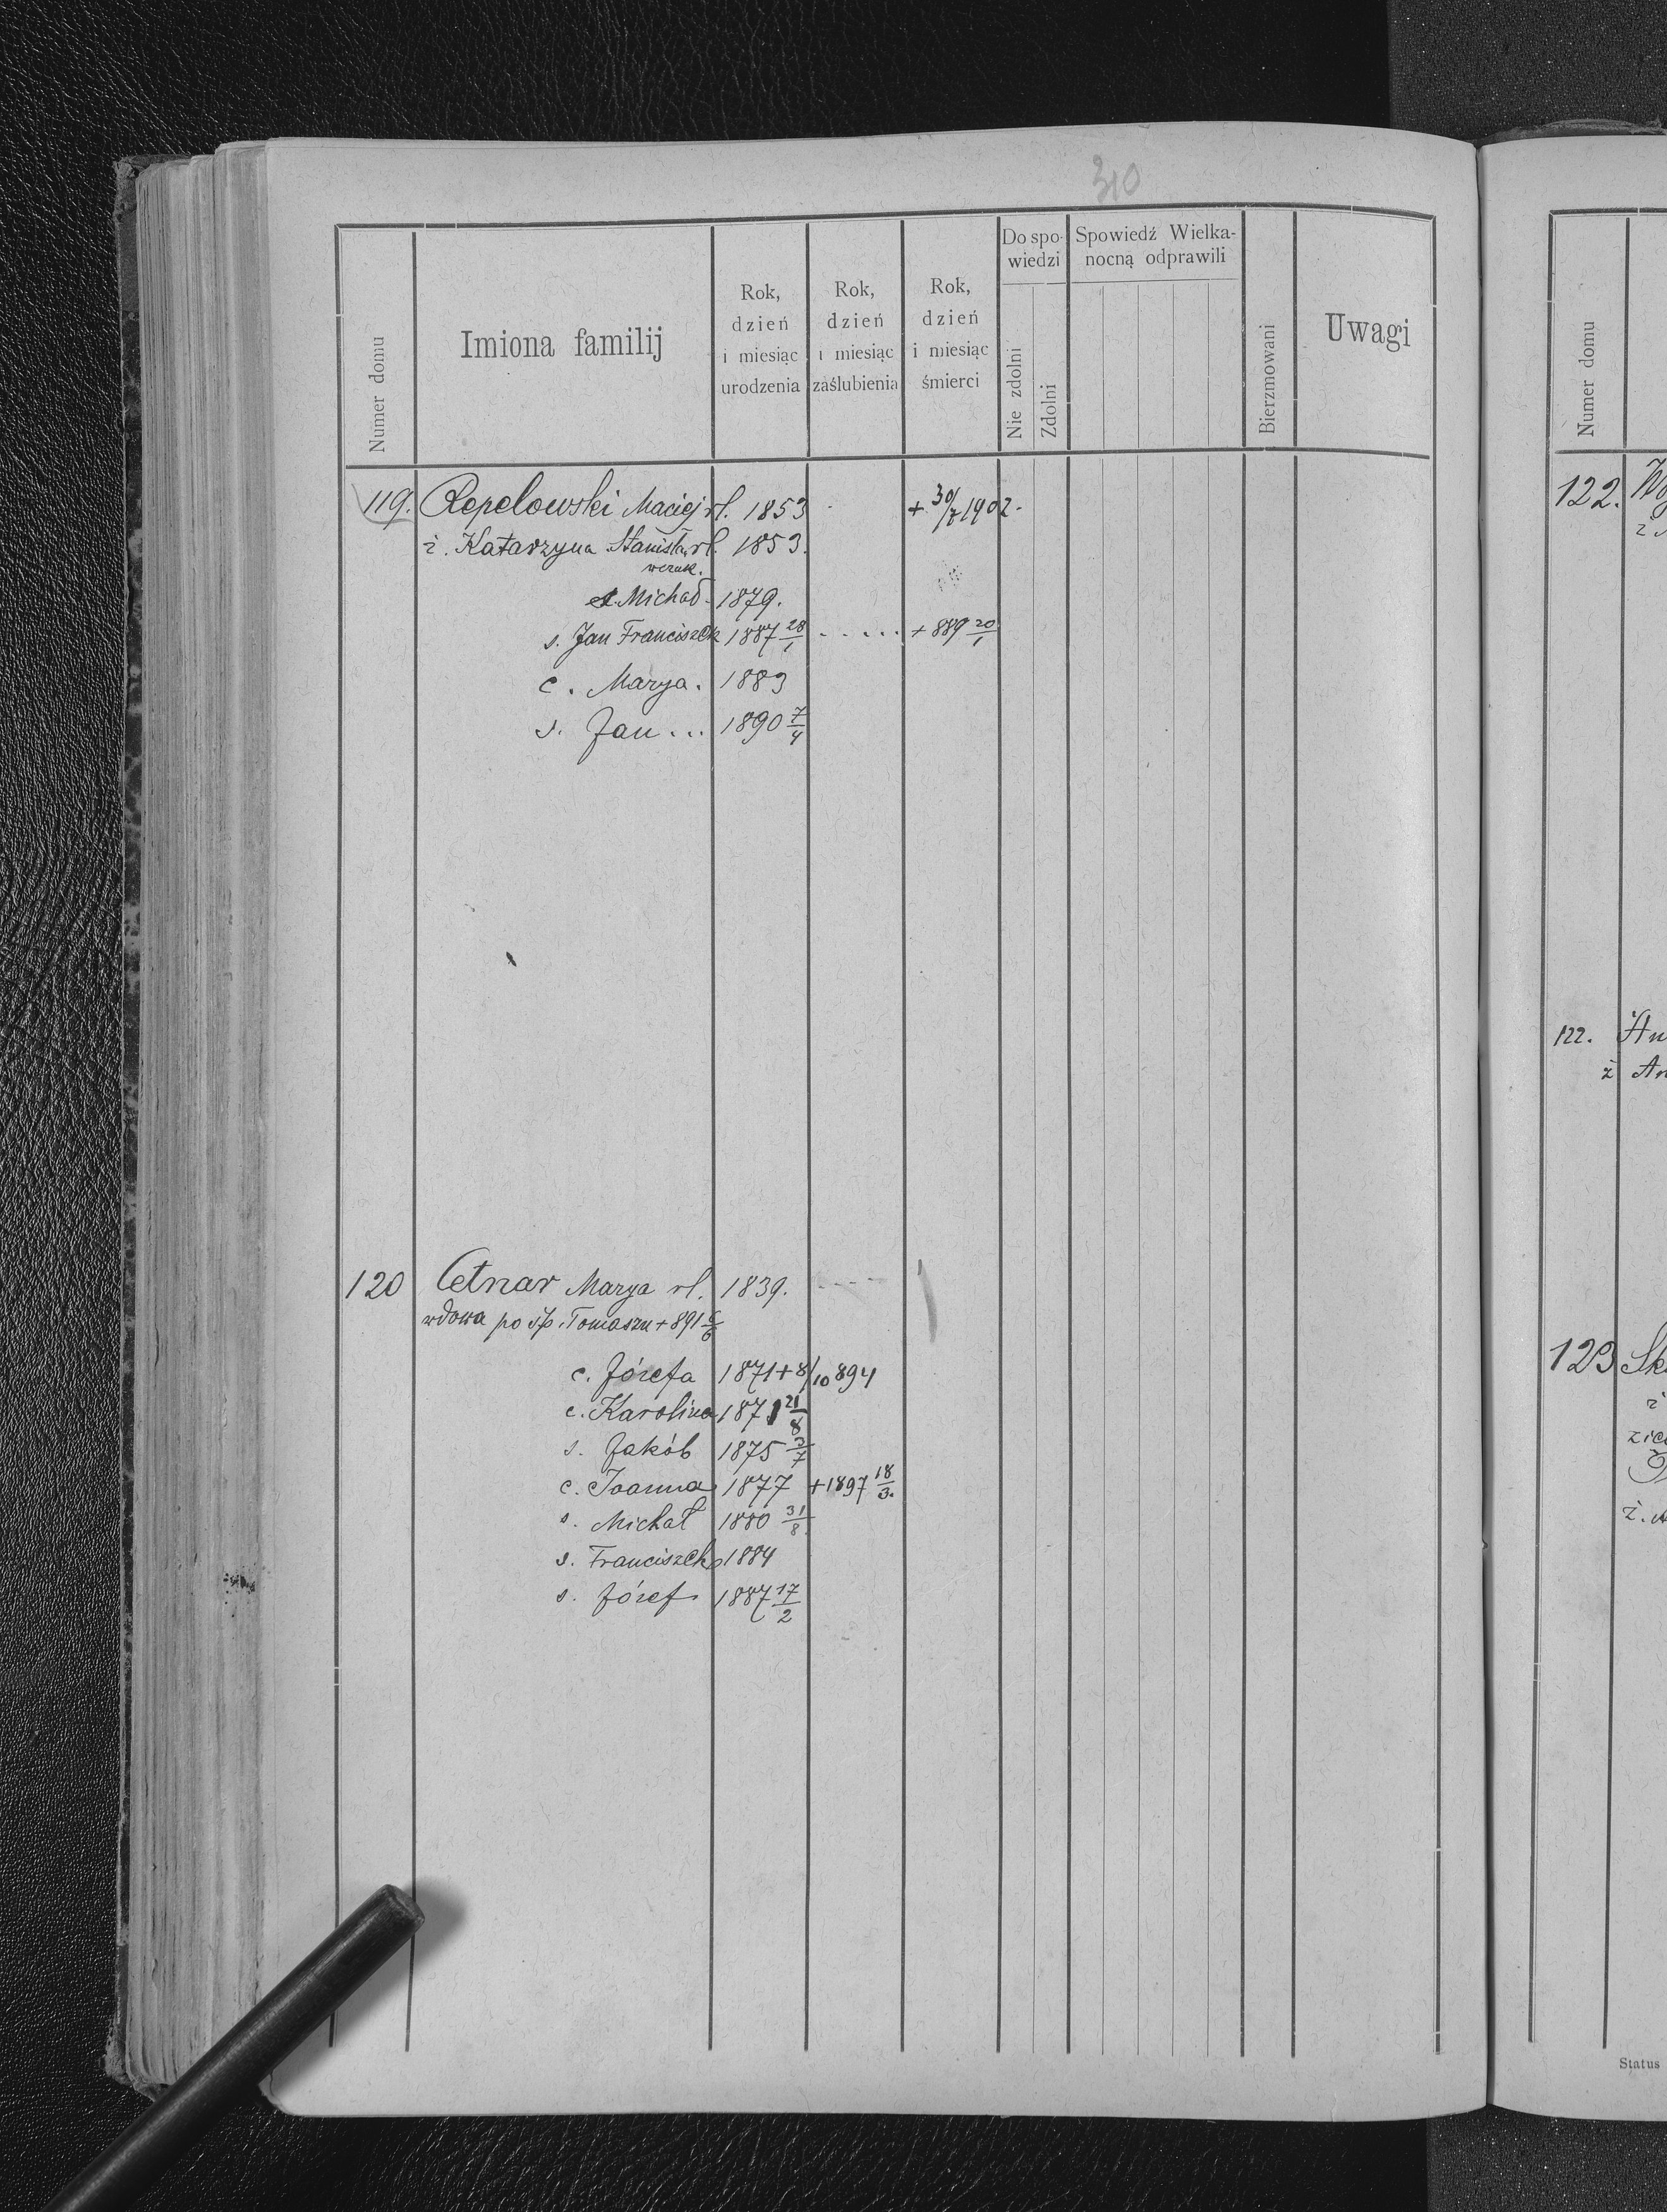 310
Numer domu
Imiona familij
Rok, dzień i miesiąc urodzenia
Rok, dzień i miesiąc zaślubienia
Rok, dzień i miesiąc śmierci
Do spo-
wiedzi
Nie zdolni
Zdolni
Spowiedź Wielka-
nocną odprawili
Bierzmowani
Uwagi
119. Repelowski Maciej rl. 1853 + 30/7 1902.
ż. Katarzyna Stanisła rl. 1853.
wczak.
s. Michał 1879.
s. Jan Franciszek 1887 28/1 ..... + 889 20/1
c. Marya. 1883
s. Jan ... 1890 7/4
120 Cetnar Marya rl. 1839. ----
wdowa po śp. Tomaszu + 891 6/6
c. Józefa 1871 + 8/10 894
c. Karolina 1871 21/8
s. Jakób 1875 3/7
c. Joanna 1877 + 1897 18/3.
s. Michał 1880 31/8
s. Franciszek 1884
s. Józef 1887 17/2
Numer domu
122.
122.
ż
123
ż.
Status